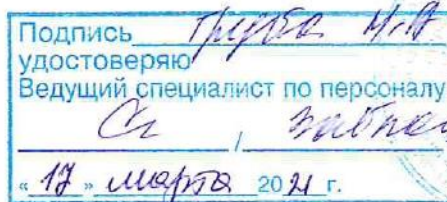 Подпись
удостоверяю
Ведущий специалист по персоналу
/
«17» марта 2021 г.